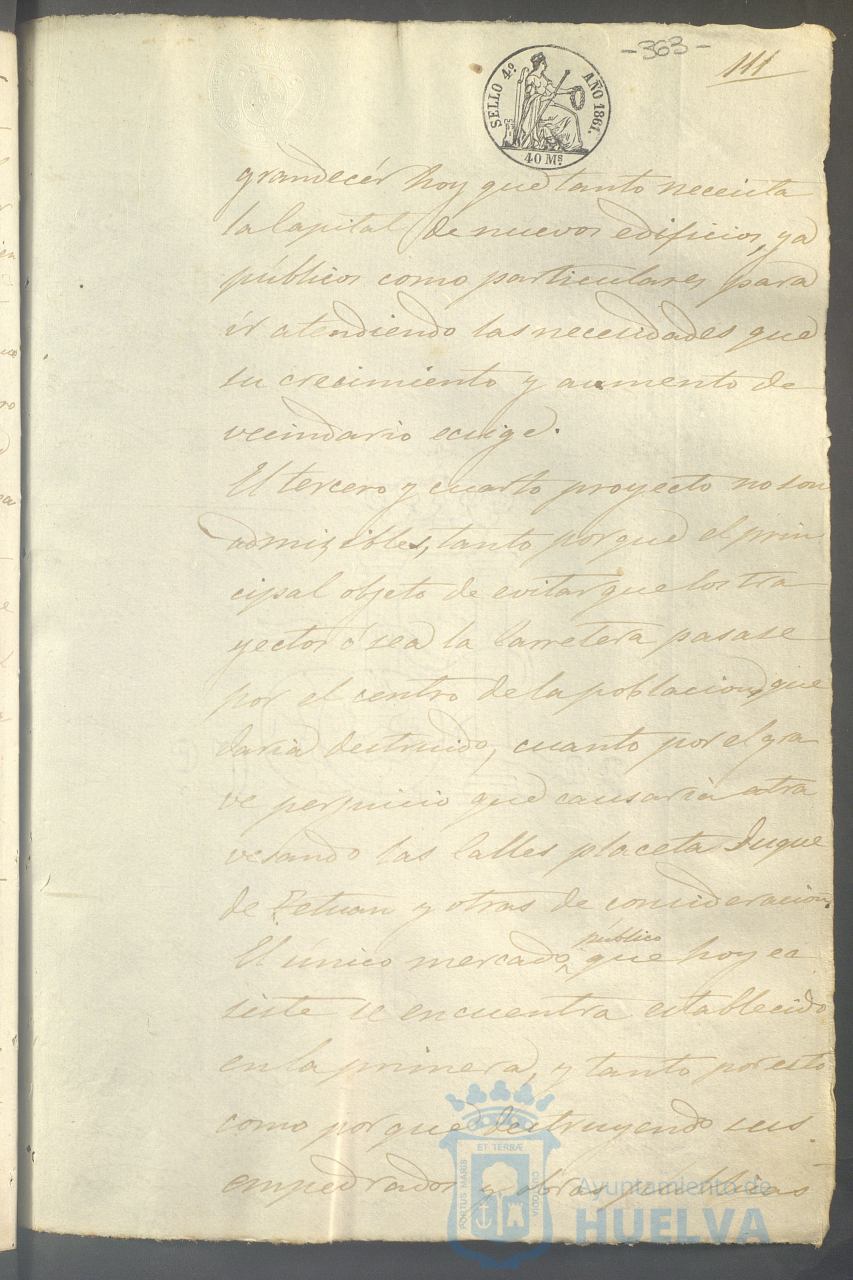 -363-
111
SELLO 4º AÑO 1861.
40 Ms.
grandecér hoy que tanto necesita
la Capital de nuevos edificios, ya
públicos como particulares para
ir atendiendo las necesidades que
su crecimiento y aumento de
vecindario ecsige.
El tercero y cuarto proyecto no son
admisibles, tanto porque el prin
cipal objeto de evitar que los tra
yectos ó sea la Carretera pasase
por el centro de la poblacion, que
daria destruido, cuanto por el gra
ve perjuicio que causaria atra
vesando las Calles placeta Duque
de Tetuan y otras de consideracion.
El único mercado público que hoy ec
siste se encuentra establecido
en la primera, y tanto por esto
como porque destruyendo sus
empedrados y obras publicas
PORTUS MARIS ET TERRÆ CUSTODIA
Ayuntamiento de
HUELVA